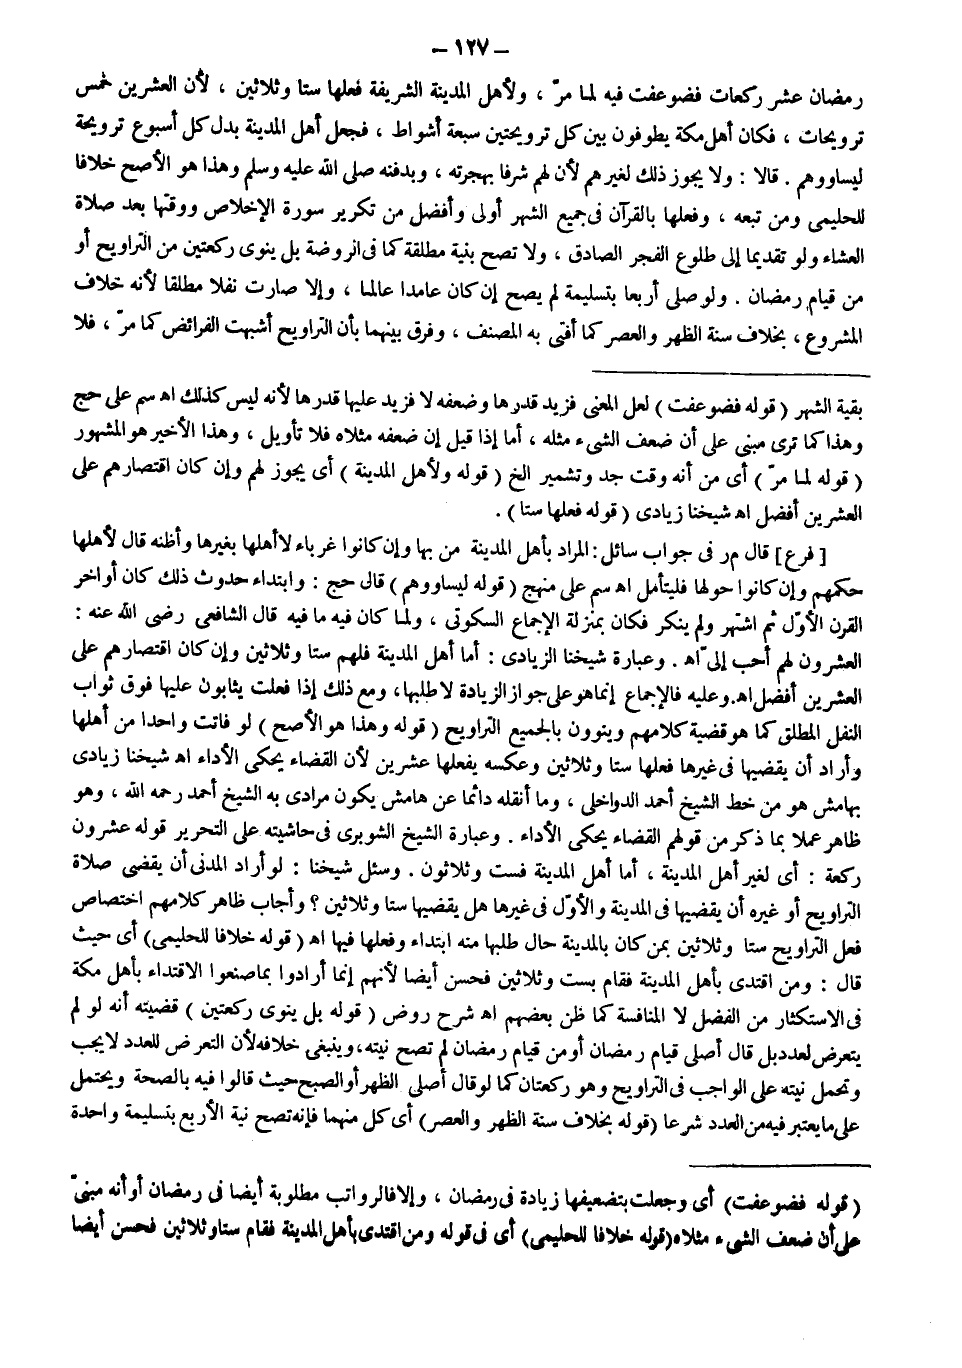 – ١٢٧ –
رمضان عشر ركعات فضوعفت فيه لما مرّ ، ولأهل المدينة الشريفة فعلها ستا وثلاثين ، لأن العشرين خمس
ترويحات ، فكان أهل مكة يطوفون بين كل ترويحتين سبعة أشواط ، فجعل أهل المدينة بدل كل أسبوع ترويحة
ليساووهم . قالا : ولا يجوز ذلك لغيرهم لأن لهم شرفا بهجرته ، وبدفنه صلى الله عليه وسلم وهذا هو الأصح خلافا
للحليمى ومن تبعه ، وفعلها بالقرآن فى جميع الشهر أولى وأفضل من تكرير سورة الإخلاص ووقتها بعد صلاة
العشاء ولو تقديما إلى طلوع الفجر الصادق ، ولا تصح بنية مطلقة كما فى الروضة بل ينوى ركعتين من التراويح أو
من قيام رمضان . ولو صلى أربعا بتسليمة لم يصح إن كان عامدا عالما ، وإلا صارت نفلا مطلقا لأنه خلاف
المشروع ، بخلاف سنة الظهر والعصر كما أفتى به المصنف ، وفرق بينهما بأن التراويح أشبهت الفرائض كما مرّ ، فلا
بقية الشهر ( قوله فضوعفت ) لعل المعنى فزيد قدرها وضعفه لا فزيد عليها قدرها لأنه ليس كذلك اه سم على حج
وهذا كما ترى مبنى على أن ضعف الشىء مثله ، أما إذا قيل إن ضعفه مثلاه فلا تأويل ، وهذا الأخير هو المشهور
( قوله لما مرّ ) أى من أنه وقت جد وتشمير الخ ( قوله ولأهل المدينة ) أى يجوز لهم وإن كان اقتصارهم على
العشرين أفضل اه شيخنا زيادى ( قوله فعلها ستا ) .
[ فرع ] قال مر فى جواب سائل : المراد بأهل المدينة من بها وإن كانوا غرباء لا أهلها بغيرها وأظنه قال لأهلها
حكمهم وإن كانوا حولها فليتأمل اه سم على منهج ( قوله ليساووهم ) قال حج : وابتداء حدوث ذلك كان أواخر
القرن الأوّل ثم اشتهر ولم ينكر فكان بمنزلة الإجماع السكوتى ، ولما كان فيه ما فيه قال الشافعى رضى الله عنه :
العشرون لهم أحب إلىّ اه . وعبارة شيخنا الزيادى : أما أهل المدينة فلهم ستا وثلاثين وإن كان اقتصارهم على
العشرين أفضل اه . وعليه فالإجماع إنما هو على جواز الزيادة لا طلبها ، ومع ذلك إذا فعلت يثابون عليها فوق ثواب
النفل المطلق كما هو قضية كلامهم وينوون بالجميع التراويح ( قوله وهذا هو الأصح ) لو فاتت واحدا من أهلها
وأراد أن يقضيها فى غيرها فعلها ستا وثلاثين وعكسه يفعلها عشرين لأن القضاء يحكى الأداء اه شيخنا زيادى
بهامش هو من خط الشيخ أحمد الدواخلى ، وما أنقله دائما عن هامش يكون مرادى به الشيخ أحمد رحمه الله ، وهو
ظاهر عملا بما ذكر من قولهم القضاء يحكى الأداء . وعبارة الشيخ الشوبرى فى حاشيته على التحرير قوله عشرون
ركعة : أى لغير أهل المدينة ، أما أهل المدينة فست وثلاثون . وسئل شيخنا : لو أراد المدنى أن يقضى صلاة
التراويح أو غيره أن يقضيها فى المدينة والأوّل فى غيرها هل يقضيها ستا وثلاثين ؟ وأجاب ظاهر كلامهم اختصاص
فعل التراويح ستا وثلاثين بمن كان بالمدينة حال طلبها منه ابتداء وفعلها فيها اه ( قوله خلافا للحليمى ) أى حيث
قال : ومن اقتدى بأهل المدينة فقام بست وثلاثين فحسن أيضا لأنهم إنما أرادوا بما صنعوا الاقتداء بأهل مكة
فى الاستكثار من الفضل لا المنافسة كما ظن بعضهم اه شرح روض ( قوله بل ينوى ركعتين ) قضيته أنه لو لم
يتعرض لعدد بل قال أصلى قيام رمضان أو من قيام رمضان لم تصح نيته ، وينبغى خلافه لأن التعرض للعدد لا يجب
وتحمل نيته على الواجب فى التراويح وهو ركعتان كما لو قال أصلى الظهر أو الصبح حيث قالوا فيه بالصحة ويحتمل
على ما يعتبر فيه من العدد شرعا ( قوله بخلاف سنة الظهر والعصر ) أى كل منهما فإنه تصح نية الأربع بتسليمة واحدة
( قوله فضوعفت ) أى وجعلت بتضعيفها زيادة فى رمضان ، وإلا فالرواتب مطلوبة أيضا فى رمضان أو أنه مبنىّ
على أن ضعف الشىء مثلاه ( قوله خلافا للحليمى ) أى فى قوله ومن اقتدى بأهل المدينة فقام ستا وثلاثين فحسن أيضا